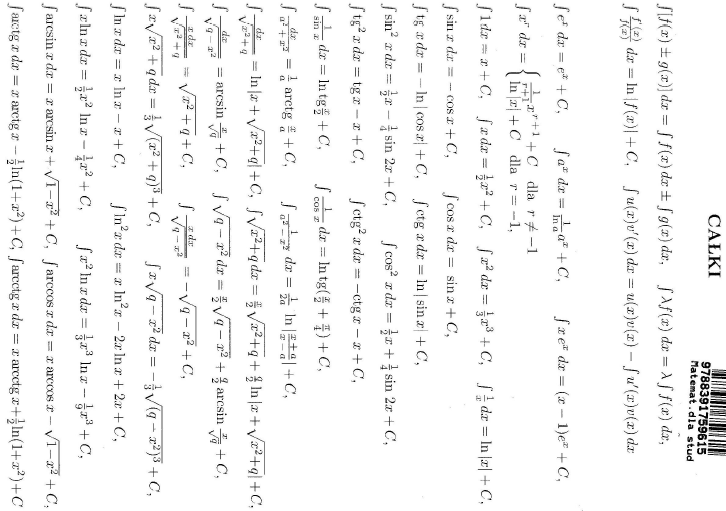 CAŁKI
9788391759615
Matemat.dla stud
∫[f(x) ± g(x)] dx = ∫ f(x) dx ± ∫ g(x) dx, ∫ λf(x) dx = λ ∫ f(x) dx,
∫ f'(x)/f(x) dx = ln |f(x)| + C, ∫ u(x)v'(x) dx = u(x)v(x) − ∫ u'(x)v(x) dx
∫ e^x dx = e^x + C, ∫ a^x dx = 1/ln a a^x + C, ∫ x e^x dx = (x − 1)e^x + C,
∫ x^r dx = { 1/(r+1) x^(r+1) + C dla r ≠ −1
ln |x| + C dla r = −1,
∫ 1 dx = x + C, ∫ x dx = 1/2 x² + C, ∫ x² dx = 1/3 x³ + C, ∫ 1/x dx = ln |x| + C,
∫ sin x dx = − cos x + C, ∫ cos x dx = sin x + C,
∫ tg x dx = − ln | cos x| + C, ∫ ctg x dx = ln | sin x| + C,
∫ sin² x dx = 1/2 x − 1/4 sin 2x + C, ∫ cos² x dx = 1/2 x + 1/4 sin 2x + C,
∫ tg² x dx = tg x − x + C, ∫ ctg² x dx = −ctg x − x + C,
∫ 1/sin x dx = ln tg x/2 + C, ∫ 1/cos x dx = ln tg(x/2 + π/4) + C,
∫ dx/(a²+x²) = 1/a arctg x/a + C, ∫ 1/(a²−x²) dx = 1/2a ln |(x+a)/(x−a)| + C,
∫ dx/√(x²+q) = ln |x + √(x²+q)| + C, ∫ √(x²+q) dx = x/2 √(x²+q) + q/2 ln |x + √(x²+q)| + C,
∫ dx/√(q−x²) = arcsin x/√q + C, ∫ √(q − x²) dx = x/2 √(q − x²) + q/2 arcsin x/√q + C,
∫ x dx/√(x²+q) = √(x² + q) + C, ∫ x dx/√(q−x²) = −√(q − x²) + C,
∫ x√(x² + q) dx = 1/3 √(x² + q)³ + C, ∫ x√(q − x²) dx = −1/3 √(q − x²)³ + C,
∫ ln x dx = x ln x − x + C, ∫ ln² x dx = x ln² x − 2x ln x + 2x + C,
∫ x ln x dx = 1/2 x² ln x − 1/4 x² + C, ∫ x² ln x dx = 1/3 x³ ln x − 1/9 x³ + C,
∫ arcsin x dx = x arcsin x + √(1−x²) + C, ∫ arccos x dx = x arccos x − √(1−x²) + C,
∫ arctg x dx = x arctg x − 1/2 ln(1+x²) + C, ∫ arcctg x dx = x arcctg x + 1/2 ln(1+x²) + C